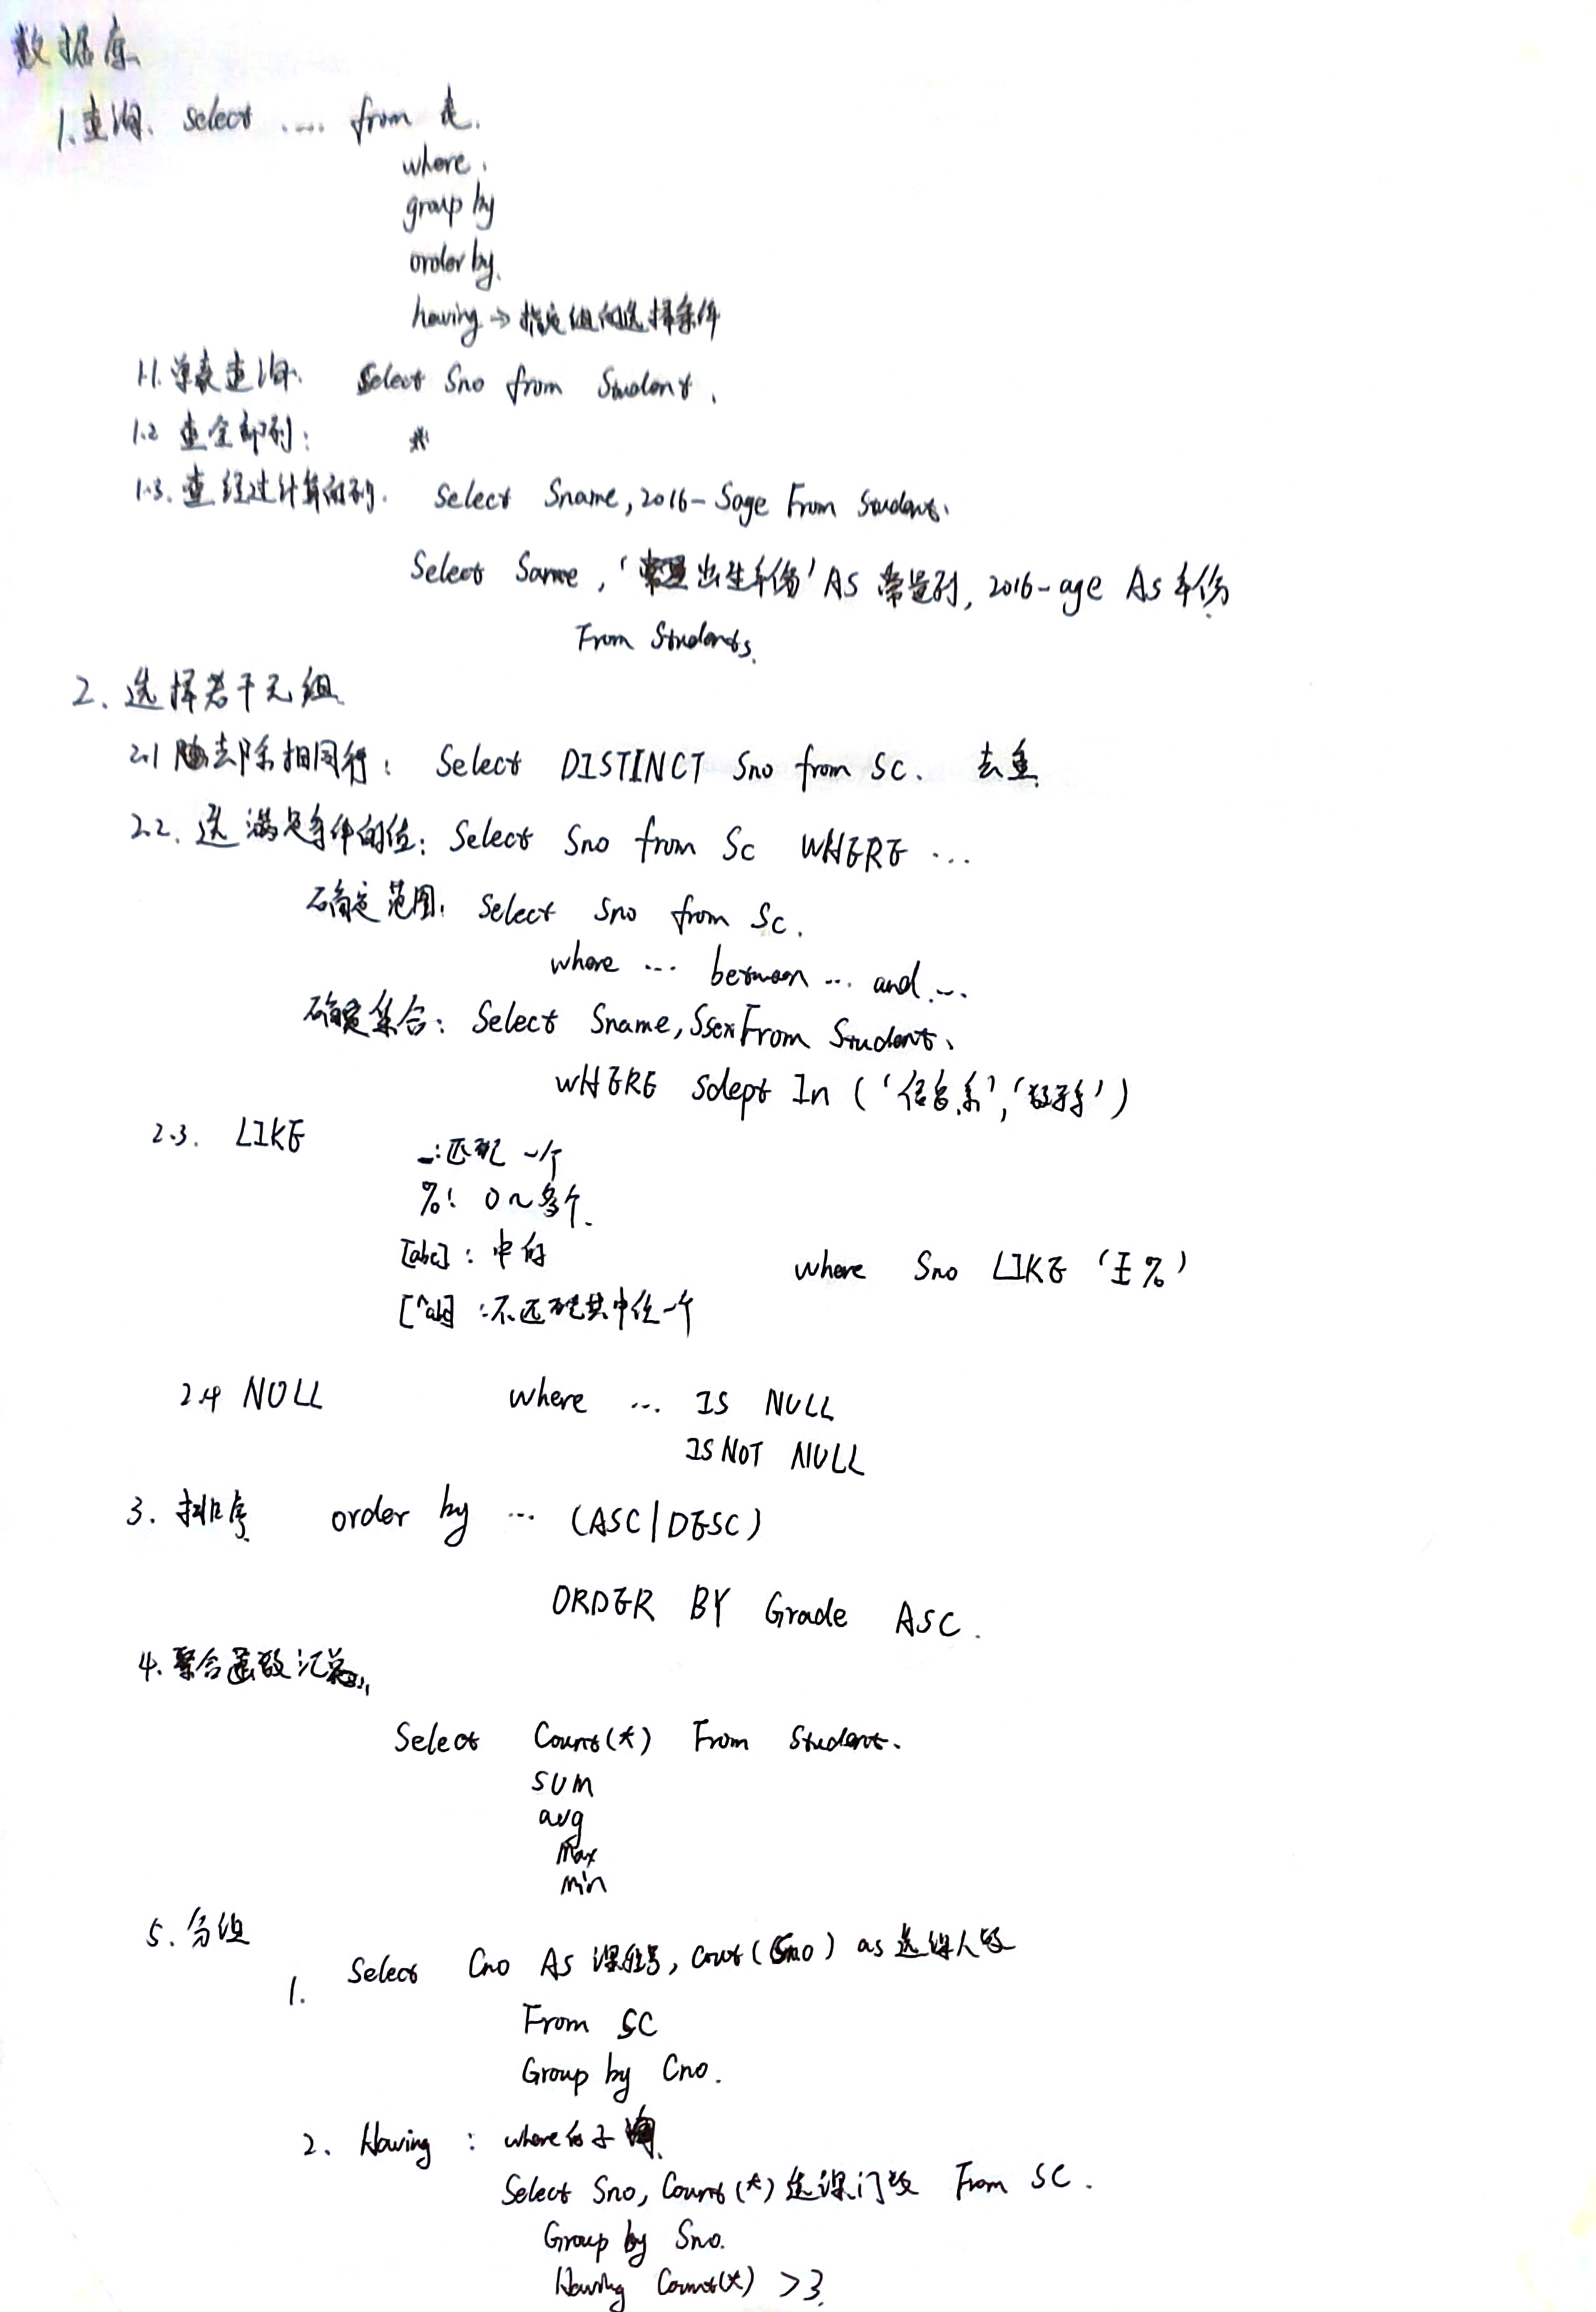 数据库
1.查询. select .... from 表.
where.
group by
order by.
having → 指定组的选择条件
1.1.单表查询. Select Sno from Student.
1.2 查全部列: *
1.3.查经过计算的列. Select Sname,2016-Sage From Student.
Select Sname,'出生年份' AS 常量列, 2016-age As 年份
From Students.
2.选择若干元组
2.1 去除相同行: Select DISTINCT Sno from SC. 去重.
2.2.选满足条件的值: Select Sno from Sc WHERE ...
确定范围: Select Sno from Sc.
where ... between ... and ...
确定集合: Select Sname,Ssex From Student.
WHERE Sdept In ('信息系','数学系')
2.3. LIKE
_:匹配一个
%: 0~多个.
[abc]: 中的
where Sno LIKE '王%'
[^ab]:不匹配其中任一个
2.4 NULL where ... IS NULL
IS NOT NULL
3. 排序 order by ... (ASC|DESC)
ORDER BY Grade ASC.
4.聚合函数汇总
Select Count(*) From Student.
SUM
avg
Max
Min
5.分组
1. Select Cno As 课程号, count(Sno) as 选课人数
From SC
Group by Cno.
2. Having : where的子
Select Sno, Count(*)选课门数 From SC.
Group by Sno.
Having Count(*) >3.